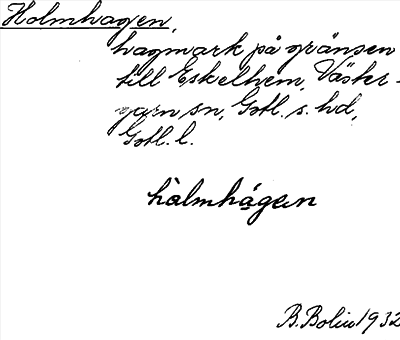 Holmhagen,
hagmark på gränsen
till Eskelhem, Väster-
garn sn, Gotl. s. hd,
Gotl. l.
hàlmhágen
B. Bolin 1932